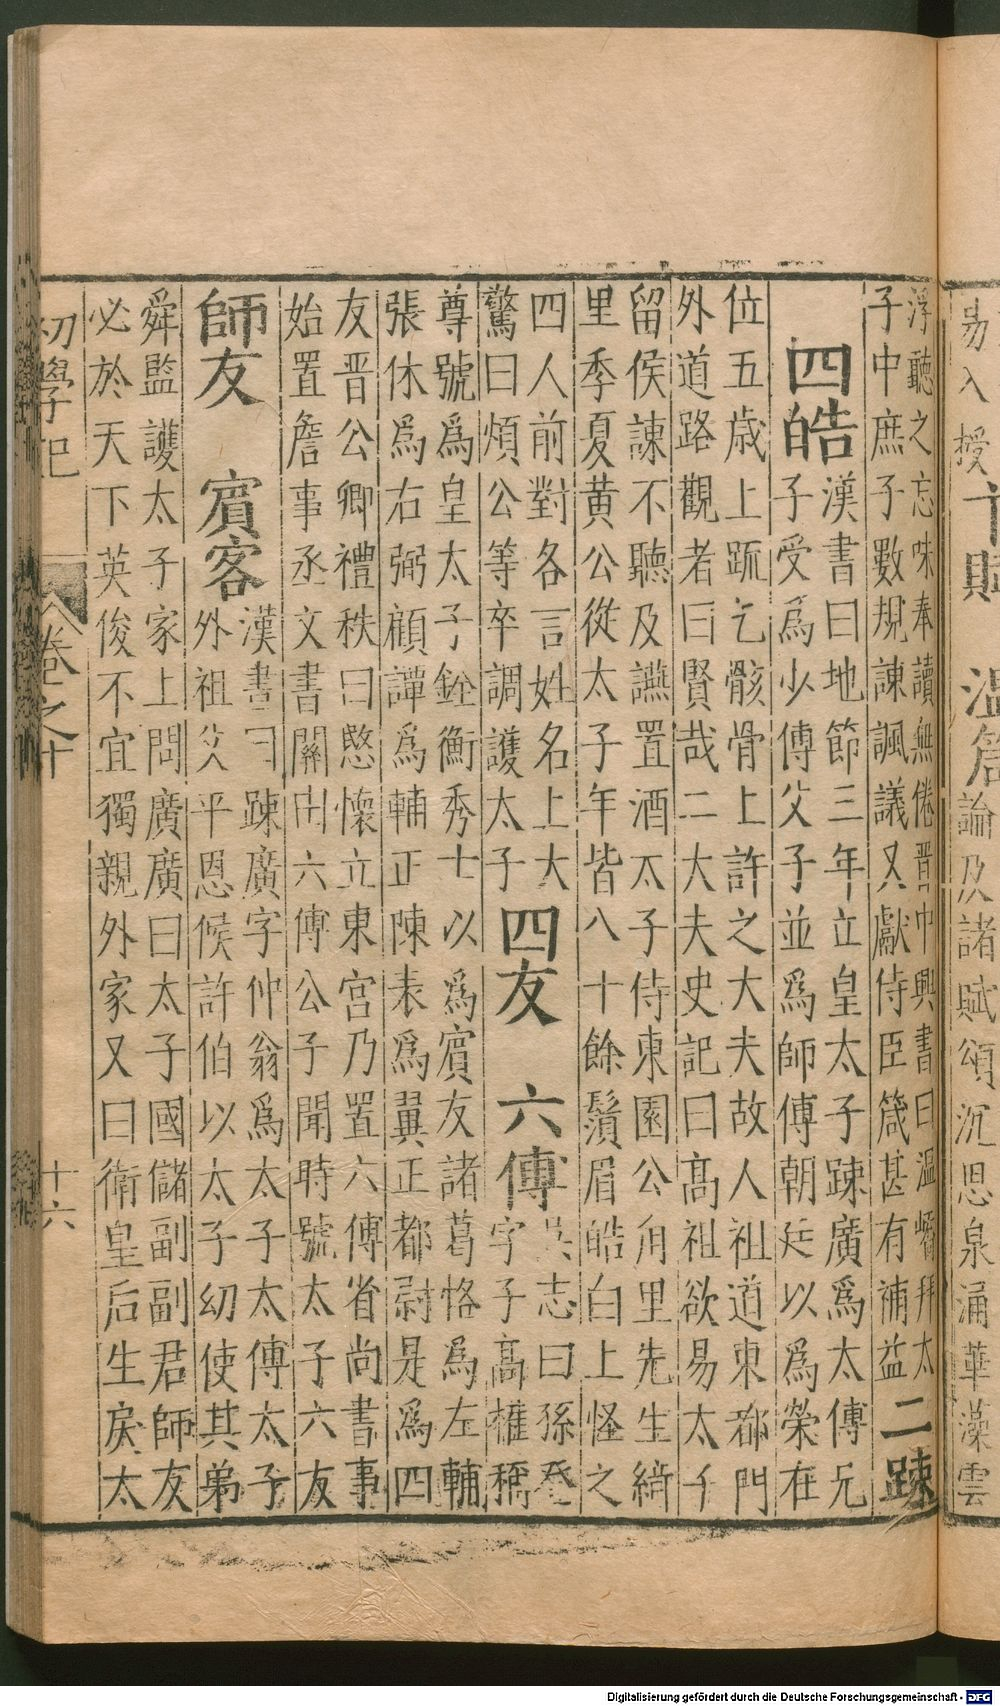 易入授十賦 溫篇論及諸賦頌沉思泉涌華藻雲
浮聽之忘味奉讀無倦晉中興書曰溫嶠拜太
子中庶子數規諫諷議又獻侍臣箴甚有補益二踈
四皓漢書曰地節三年立皇太子踈廣爲太傅兄
子受爲少傅父子並爲師傅朝廷以爲榮在
位五歲上䟽乞骸骨上許之大夫故人祖道東都門
外道路觀者曰賢哉二大夫史記曰髙祖欲易太子
留侯諫不聽及讌置酒太子侍東園公甪里先生綺
里季夏黃公從太子年皆八十餘鬚眉皓白上怪之
四人前對各言姓名上大
驚曰煩公等卒調護太子四友 六傅吳志曰孫登
字子髙權稱
尊號爲皇太子銓衡秀士以爲賓友諸葛恪爲左輔
張休爲右弼顧譚爲輔正陳表爲翼正都尉是爲四
友晋公卿禮秩曰愍懷立東宮乃置六傅省尚書事
始置詹事丞文書關由六傅公子聞時號太子六友
師友 賓客漢書曰踈廣字仲翁爲太子太傅太子
外祖父平恩候許伯以太子幼使其弟
舜監護太子家上問廣廣曰太子國儲副副君師友
必於天下英俊不宜獨親外家又曰衛皇后生戾太
初學記 卷之十 十六
Digitalisierung gefördert durch die Deutsche Forschungsgemeinschaft - DFG